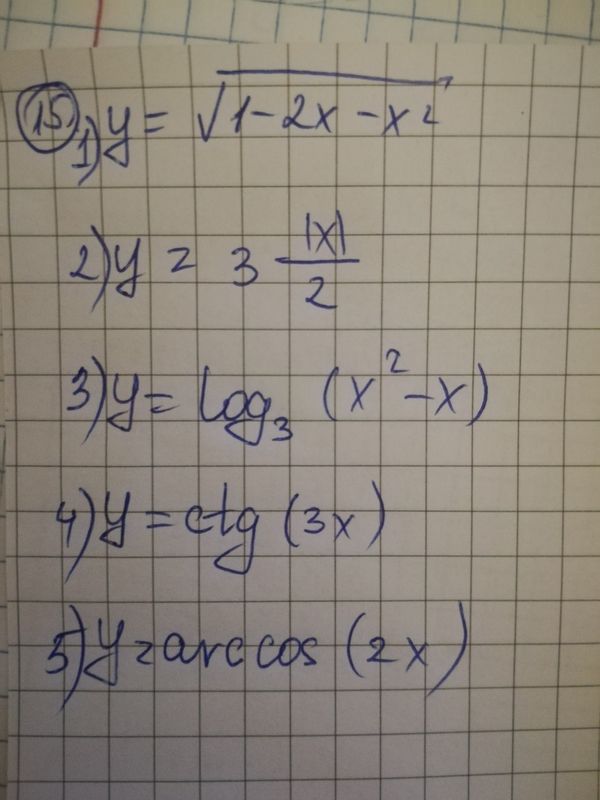 15.
1) y = √1-2x-x²
2) y = 3 |x|/2
3) y = log₃ (x²-x)
4) y = ctg (3x)
5) y = arccos (2x)